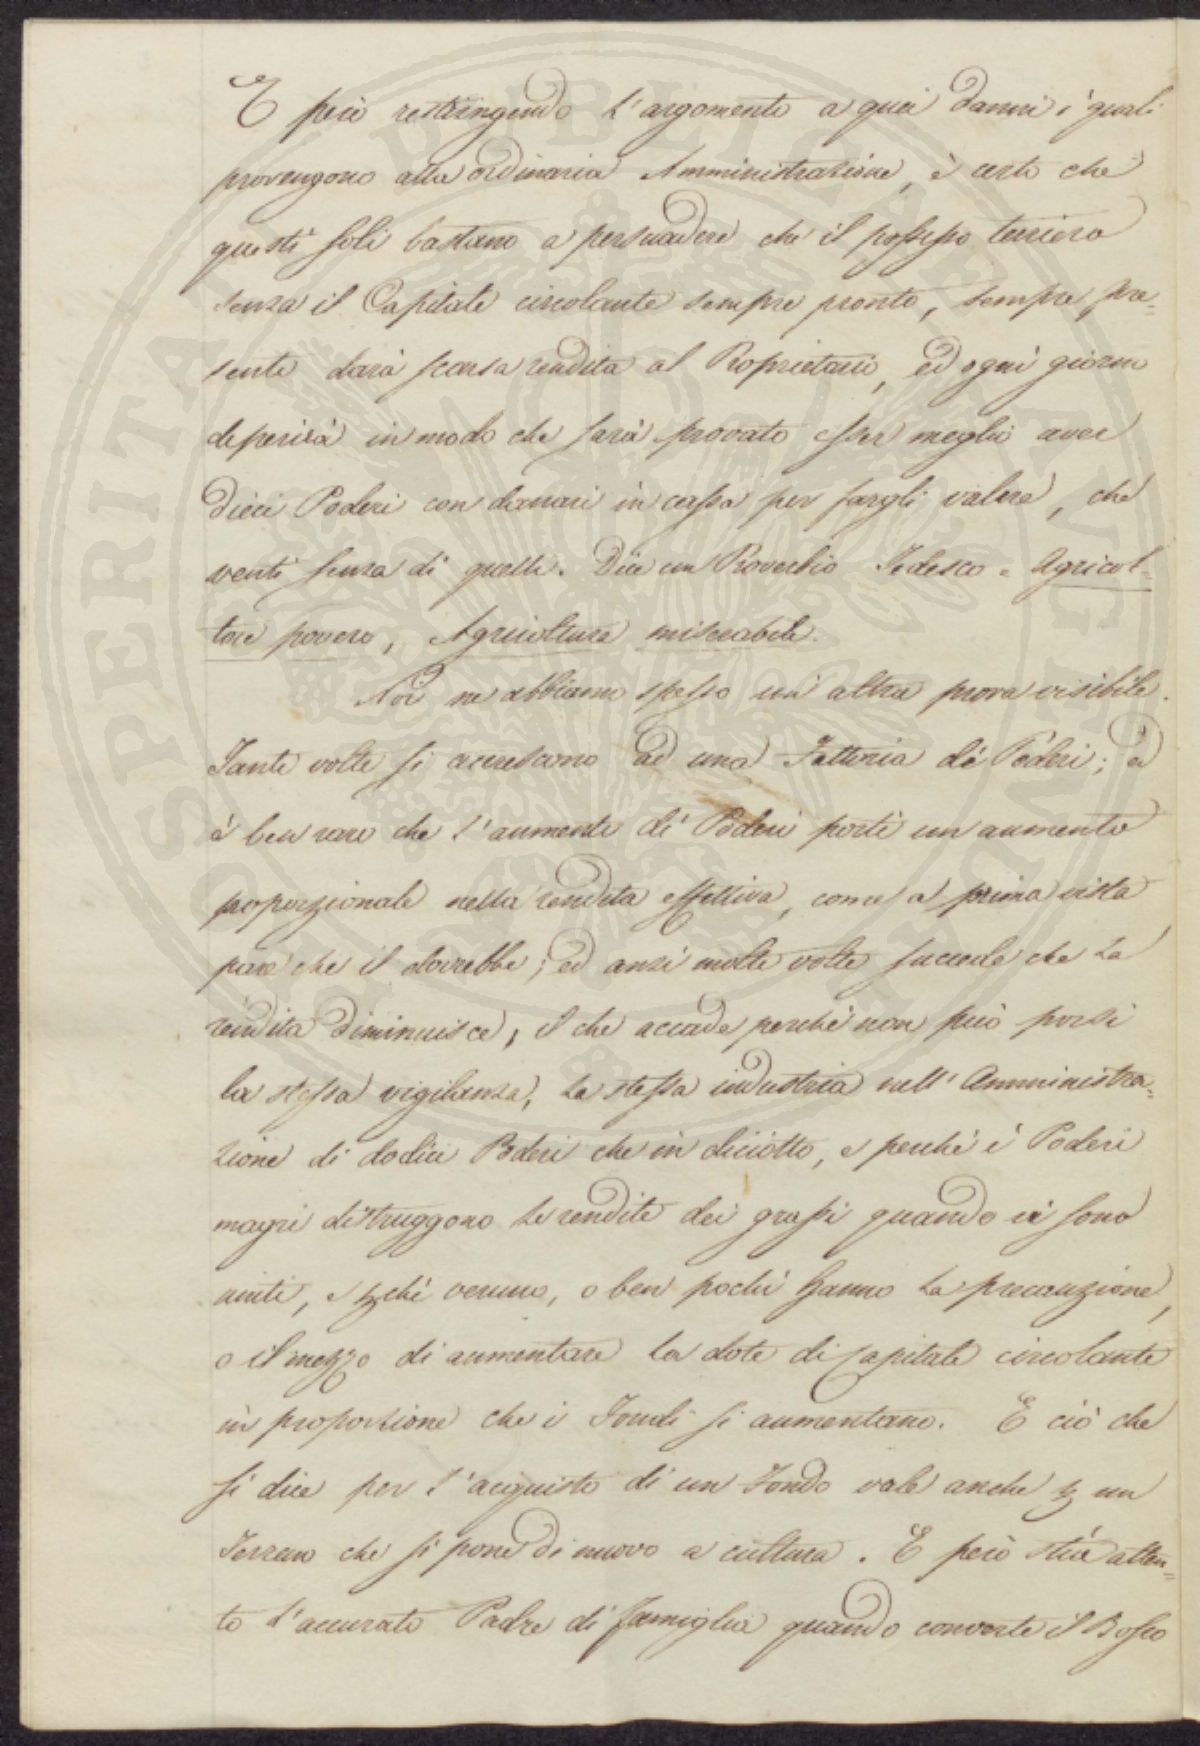 E però restringendo l'argomento a quei danni i quali
provengono alla ordinaria Amministrazione, è certo che
questi soli bastano a persuadere che il possesso terriero
senza il Capitale circolante sempre pronto, sempre pre=
sente darà scarsa rendita al Proprietario, ed ogni giorno
deperirà in modo che sarà provato esser meglio aver
dieci Poderi con danari in cassa per fargli valere, che
venti senza di quelli. Dice un Proverbio Tedesco = Agricol=
tore povero, Agricoltura miserabile.
Noi ne abbiamo spesso un'altra prova visibile.
Tante volte si accrescono ad una Fattoria de' Poderi; ed
è ben raro che l'aumento di Poderi porti un aumento
proporzionale nella rendita effettiva, come a prima vista
pare che il dovrebbe; ed anzi molte volte succede che la
rendita diminuisce, il che accade perchè non può porsi
la stessa vigilanza, la stessa industria nell'Amministra=
zione di dodici Poderi che in diciotto, e perchè i Poderi
magri distruggono le rendite dei grassi quando vi sono
uniti, e pchè veruno, o ben pochi hanno la precauzione,
o il mezzo di aumentare la dote di capitale circolante
in proporzione che i Fondi si aumentano. E ciò che
si dice per l'acquisto di un Fondo vale anche p un
Terreno che si pone di nuovo a cultura. E però stia atten=
to l'accurato Padre di famiglia quando converte il Bosco
PROSPERITAS PUBLICA AUGUMENTA